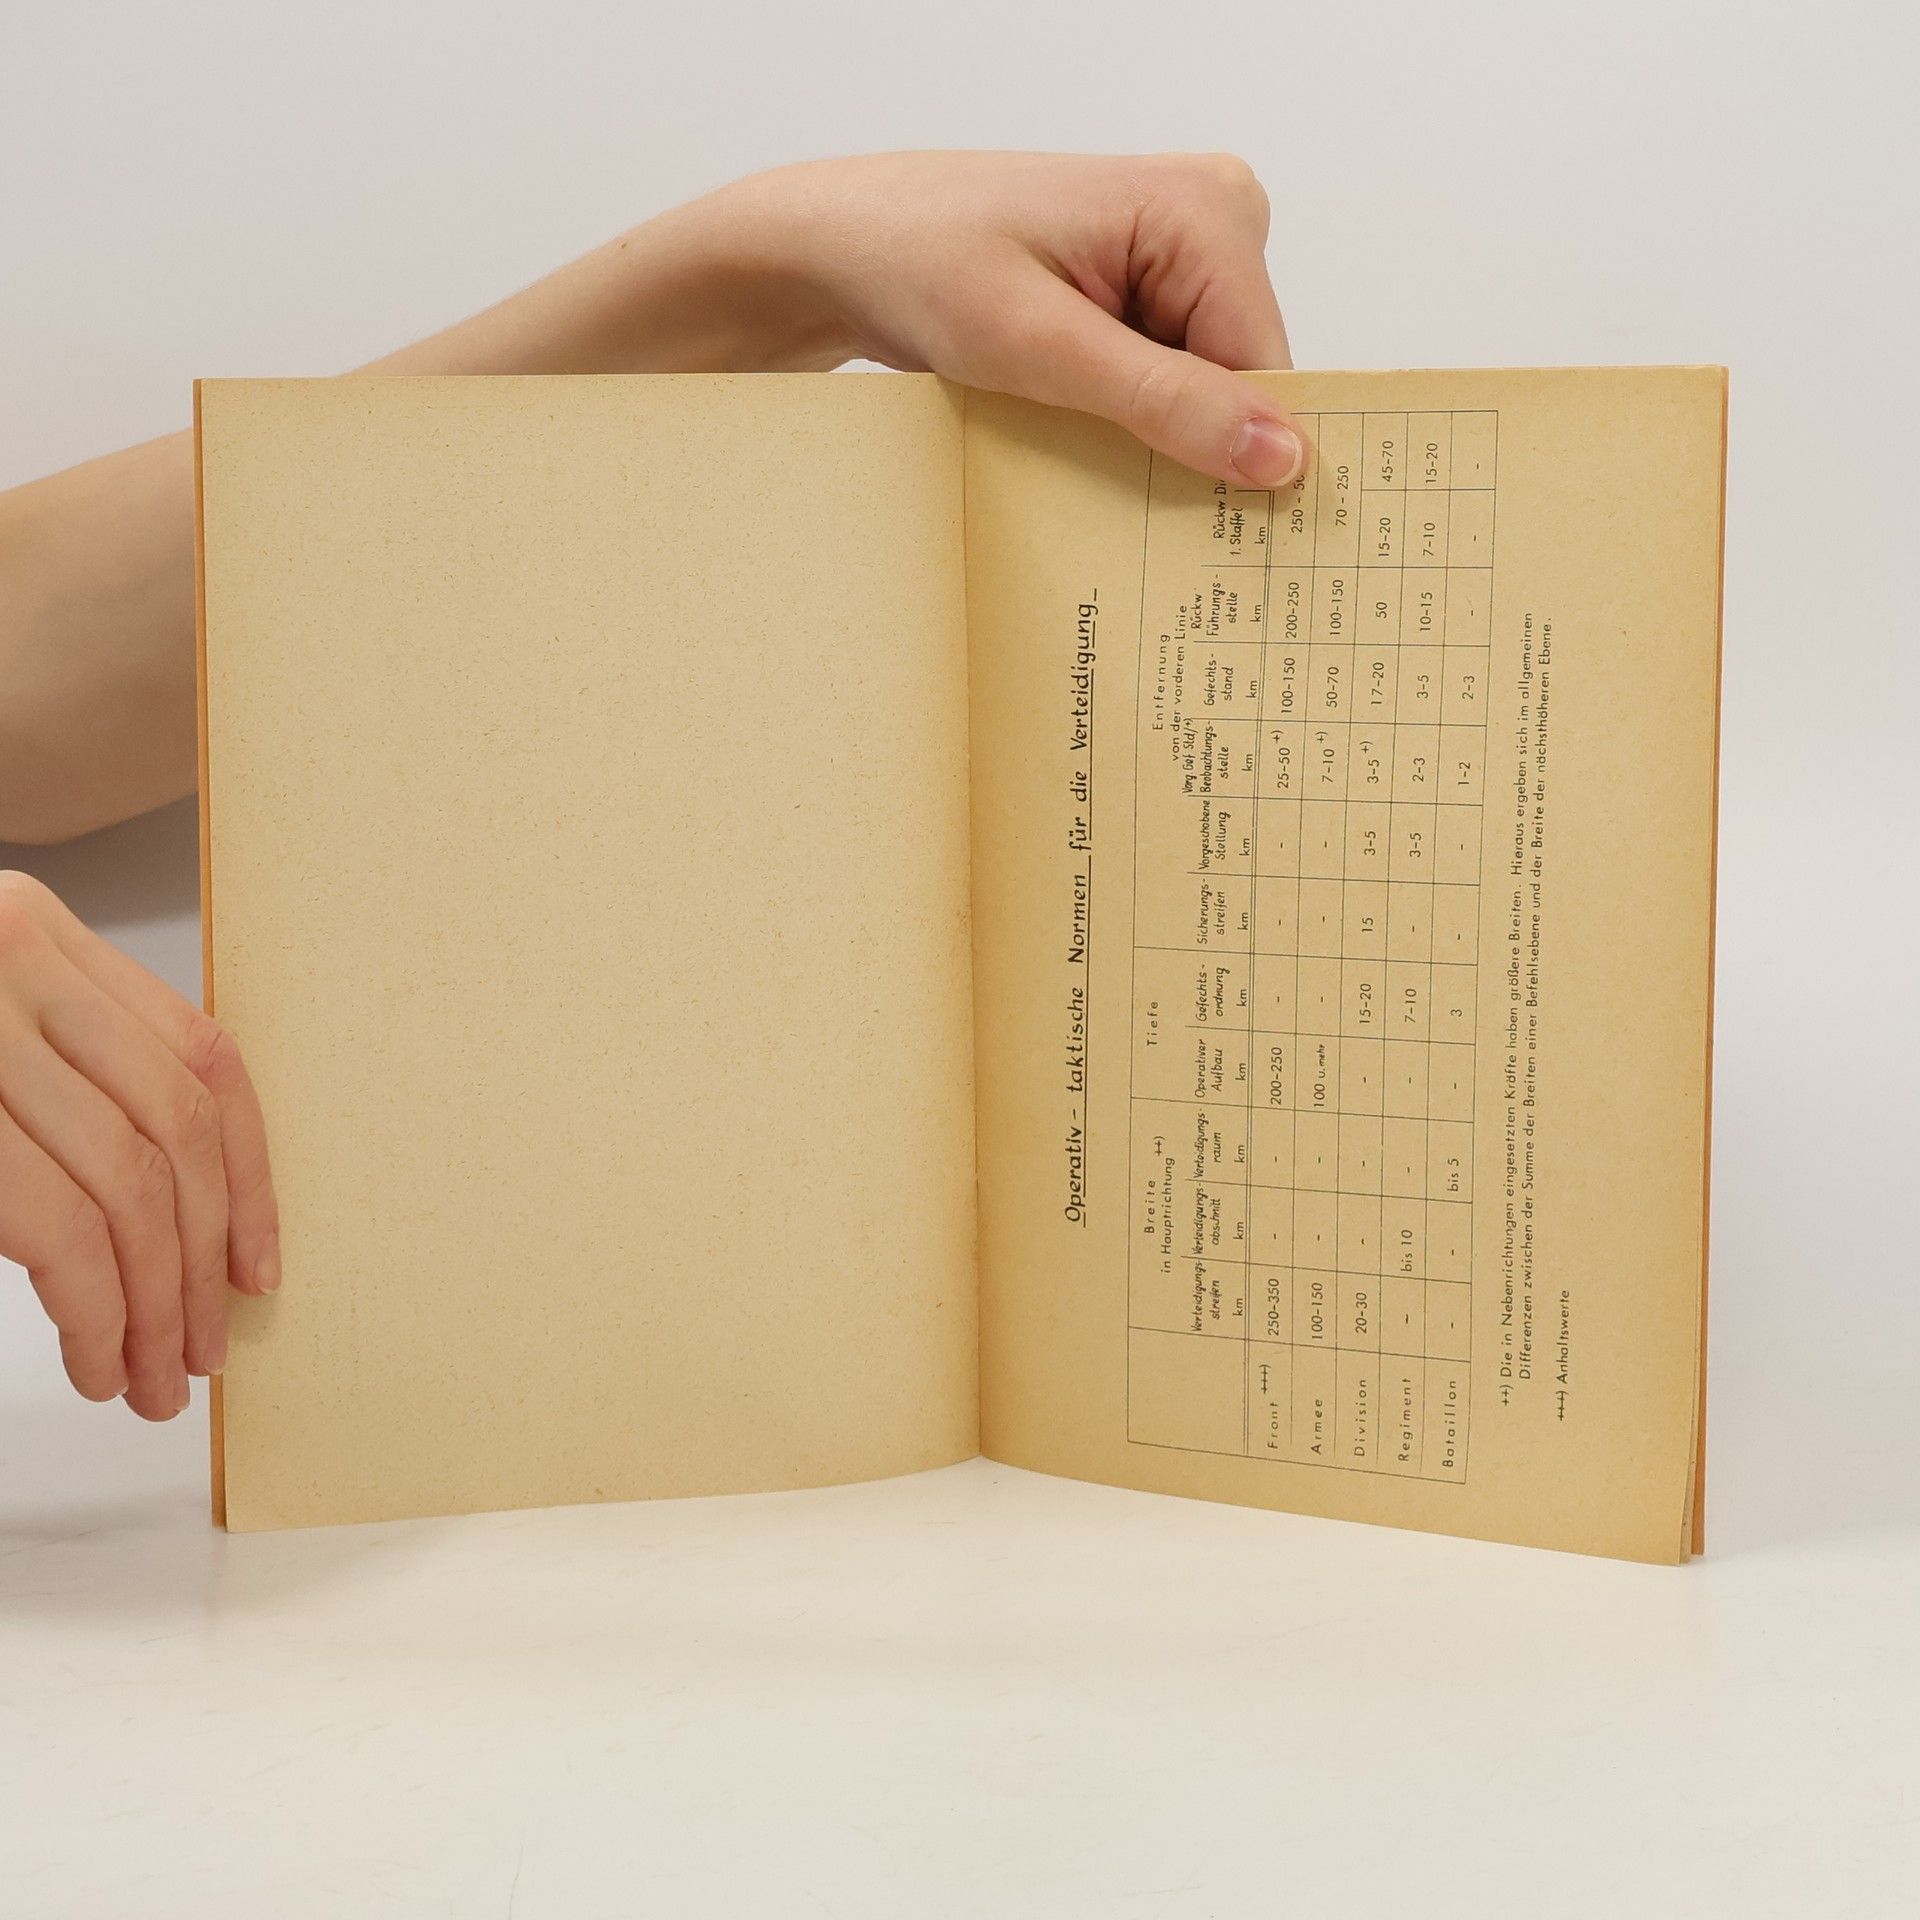 Operativ - taktische Normen für die Verteidigung
Breite in Hauptrichtung ++) Tiefe Entfernung von der vorderen Linie
Verteidigungs-streifen km Verteidigungs-abschnitt km Verteidigungs-raum km Operativer Aufbau km Gefechts-ordnung km Sicherungs-streifen km Vorgeschobene Stellung km Vorg. Gef. Std/+) Beobachtungs-stelle km Gefechts-stand km Rückw Führungs-stelle km Rückw 1. Staffel km
Front ++++) 250-350 - - 200-250 - - - 25-50 +) 100-150 200-250 250 -
Armee 100-150 - - 100 u. mehr - - - 7-10 +) 50-70 100-150 70 - 250
Division 20-30 - - - 15-20 15 3-5 3-5 +) 17-20 50 15-20 45-70
Regiment - bis 10 - - 7-10 - 3-5 2-3 3-5 10-15 7-10 15-20
Bataillon - - bis 5 - 3 - - 1-2 2-3 - - -
++) Die in Nebenrichtungen eingesetzten Kräfte haben größere Breiten. Hieraus ergeben sich im allgemeinen
Differenzen zwischen der Summe der Breiten einer Befehlsebene und der Breite der nächsthöheren Ebene.
++++) Anhaltswerte